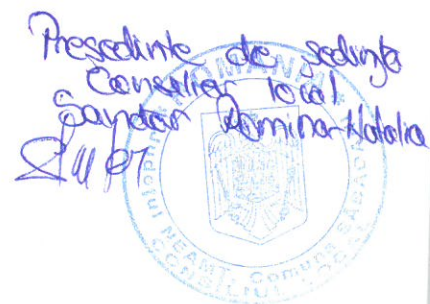 Presedinte de sedinta
Consilier local
Sandor Romina-Natalia
ROMANIA
Judeţul NEAMŢ, Comuna SĂBĂOANI
CONSILIUL LOCAL